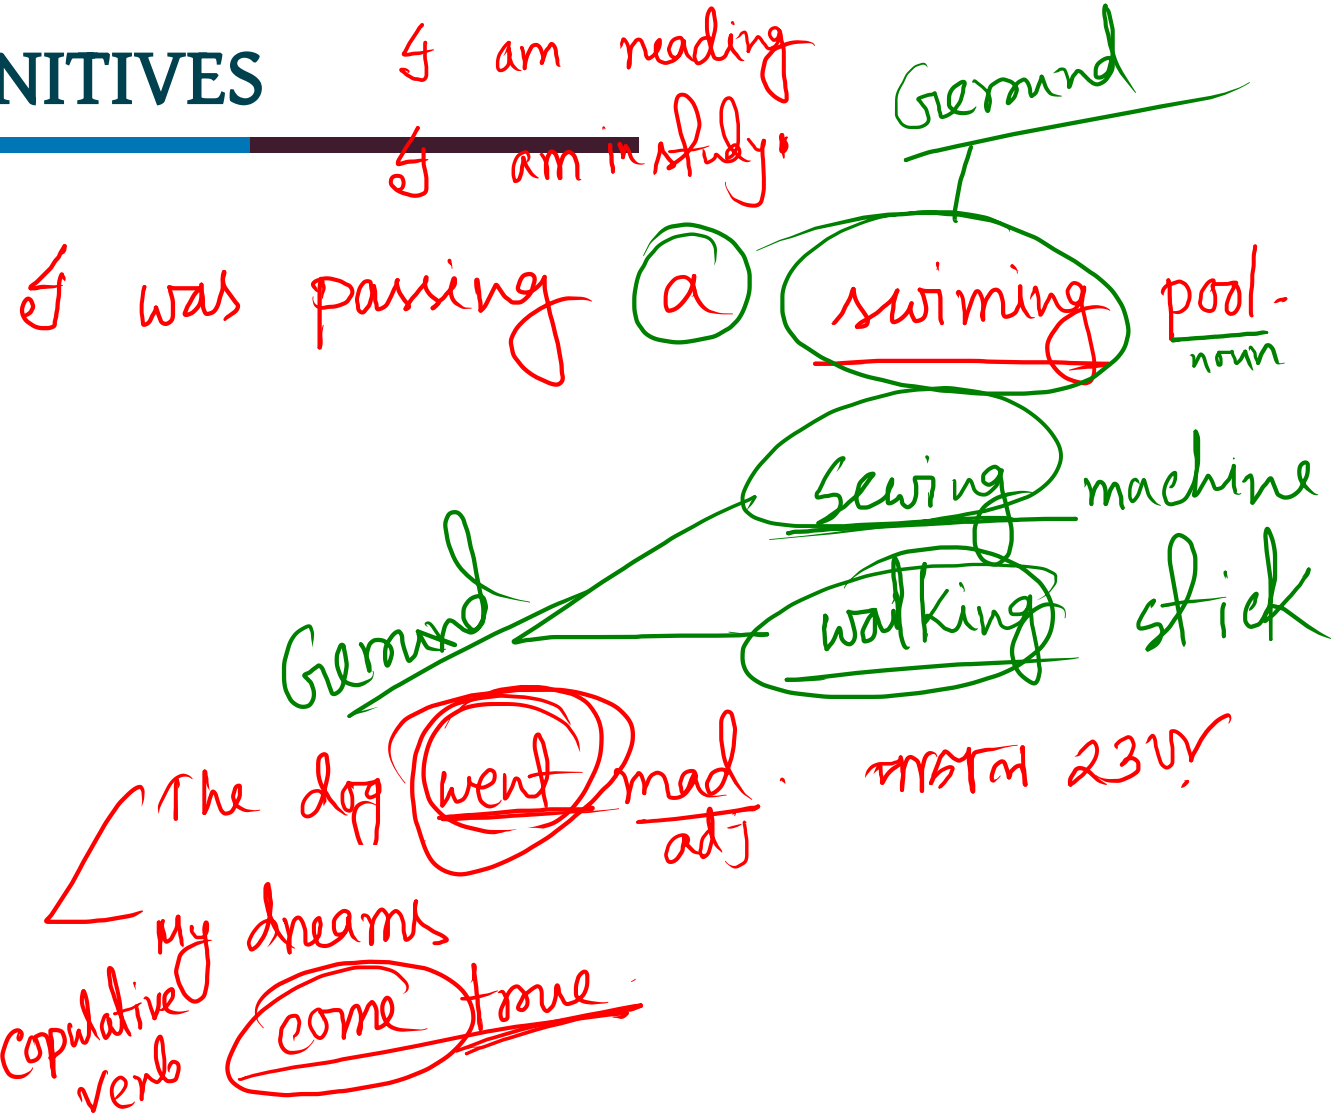 NITIVES
I am reading
I am in study.
Gerund
I was passing a swiming pool.
noun
sewing machine
Gerund
walking stick
The dog went mad.
adj
My dreams
come true.
copulative
verb